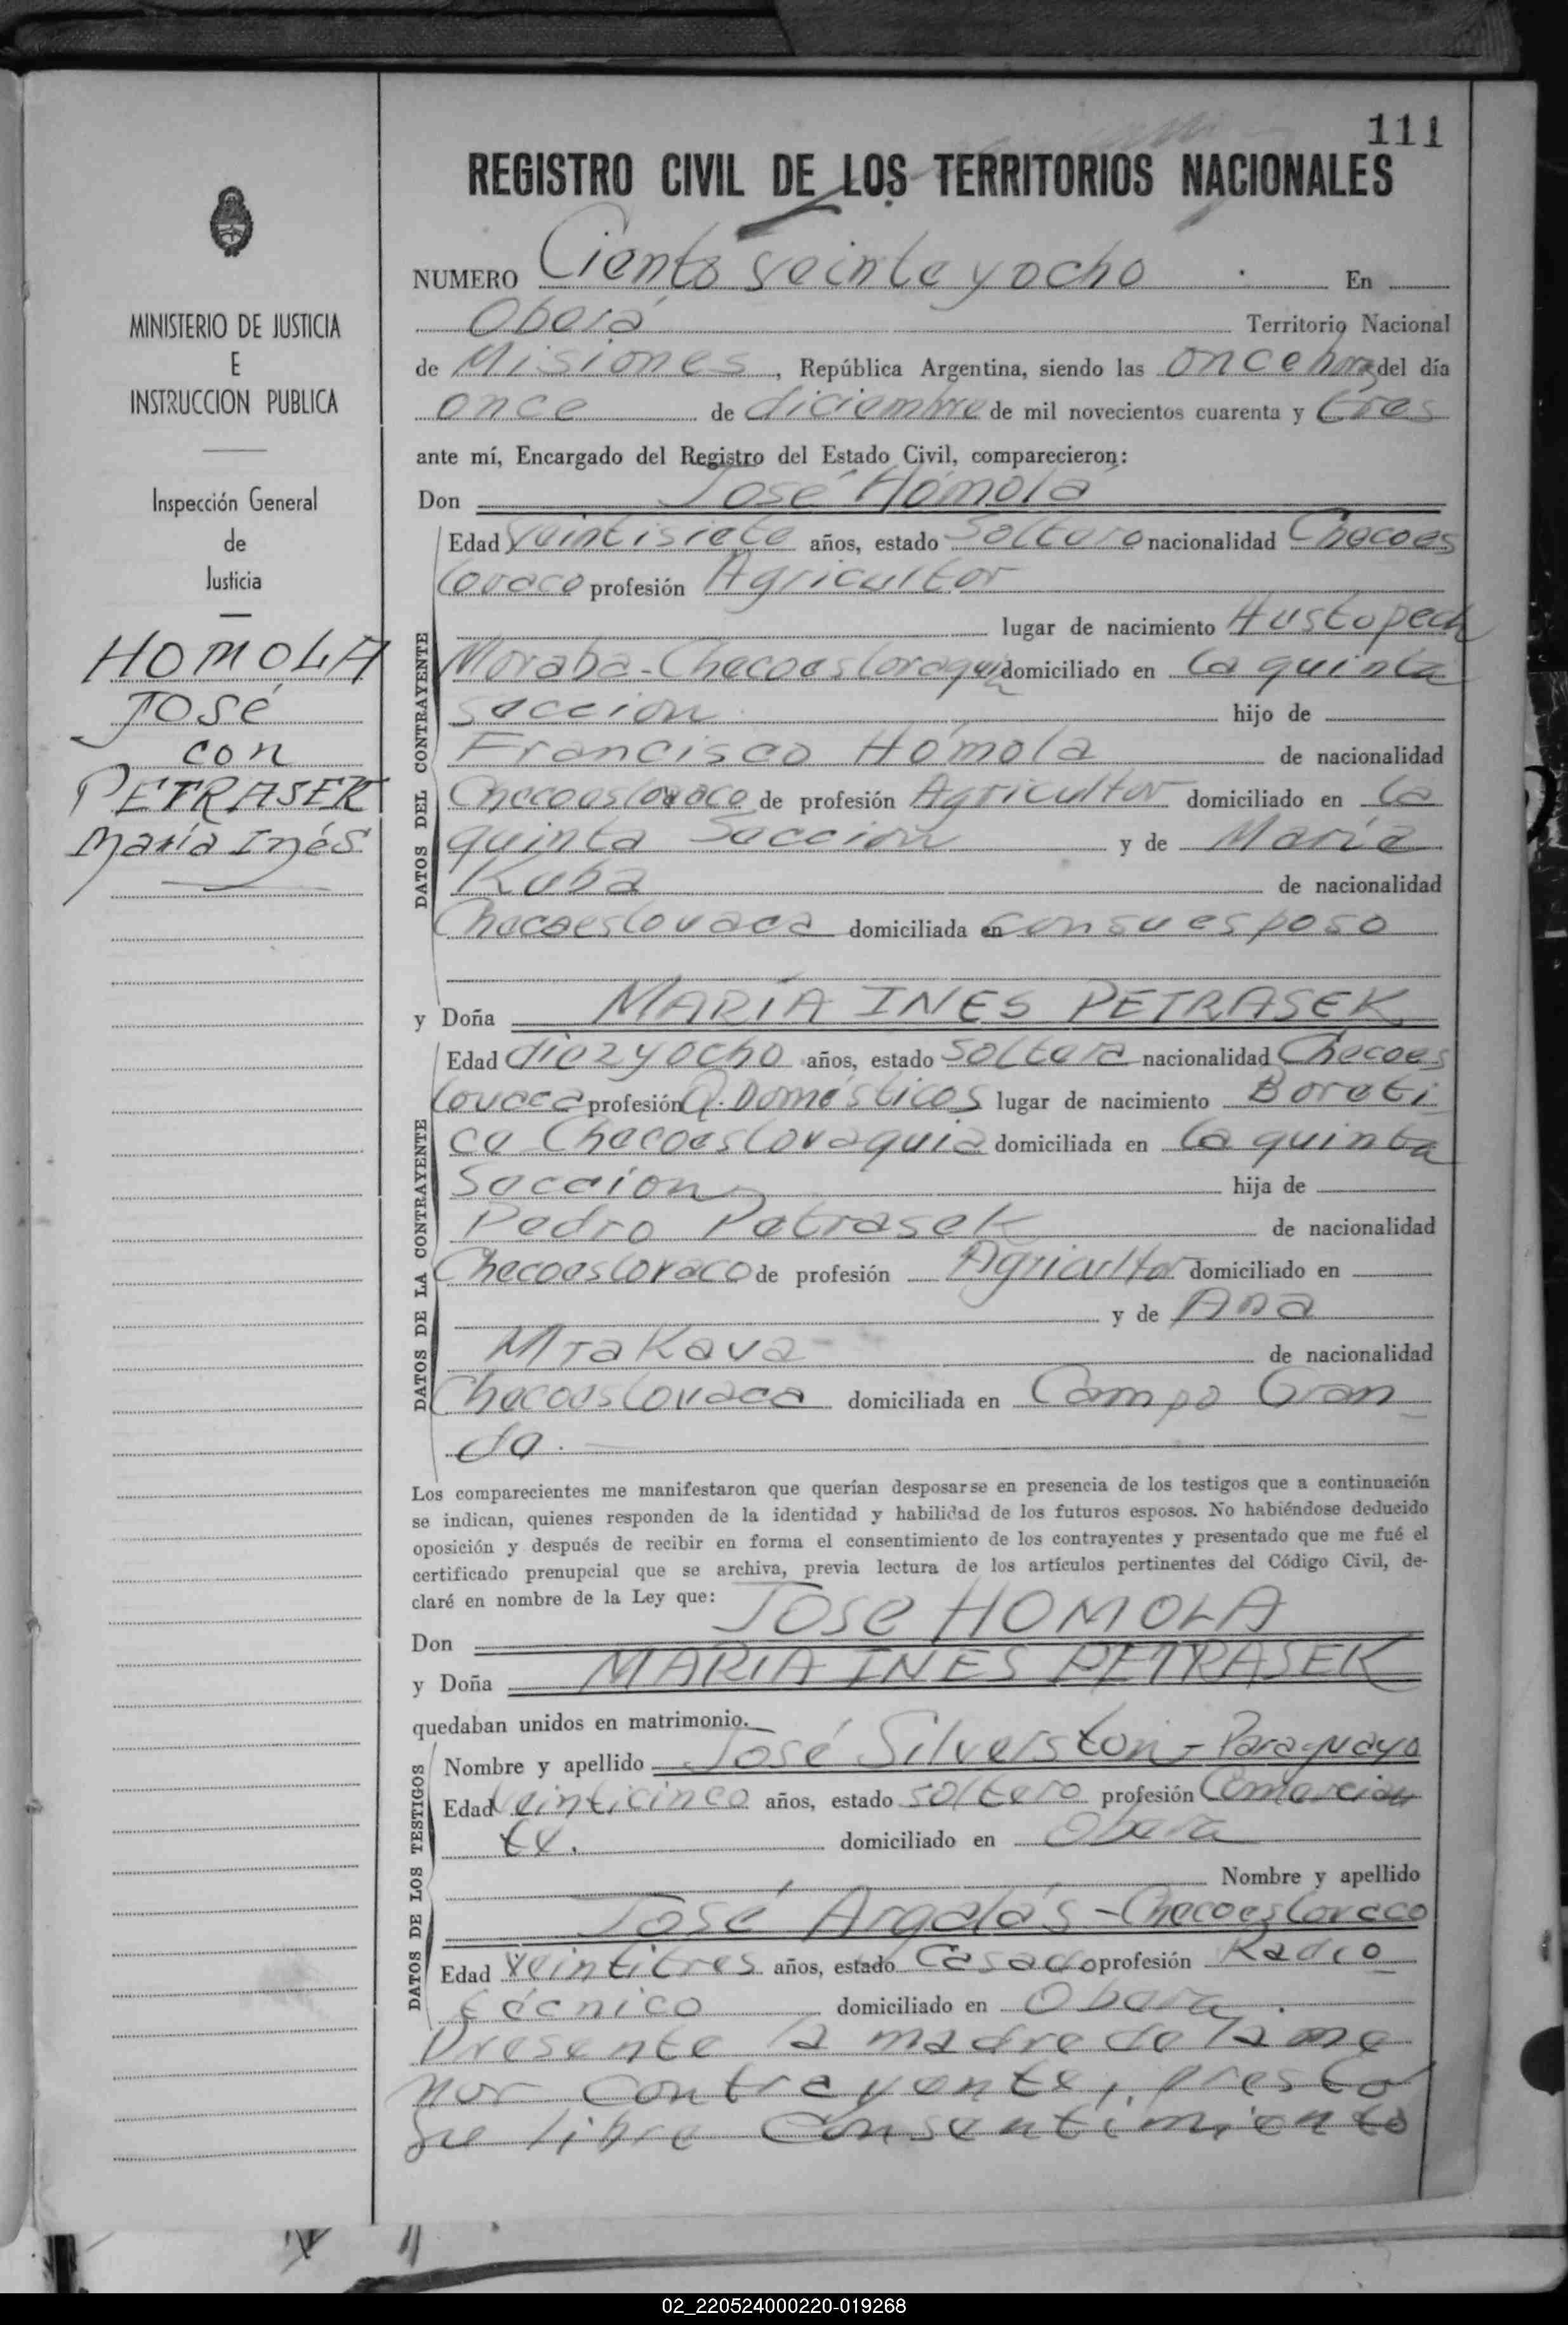 111
REGISTRO CIVIL DE LOS TERRITORIOS NACIONALES
MINISTERIO DE JUSTICIA
E
INSTRUCCION PUBLICA
Inspección General
de
Justicia
HOMOLA
JOSé
con
PETRASEK
María Inés
NUMERO Ciento veinte y ocho . En
Oberá Territorio Nacional
de Misiones, República Argentina, siendo las once horas del día
once de diciembre de mil novecientos cuarenta y tres
ante mí, Encargado del Registro del Estado Civil, comparecieron:
Don José Hómola
DATOS DEL CONTRAYENTE
Edad veintisiete años, estado Soltero nacionalidad Checoes
lovaco profesión Agricultor
lugar de nacimiento Hustopech
Moraba-Checoesloraquia domiciliado en la quinta
seccion hijo de
Francisco Hómola de nacionalidad
Checoeslovaco de profesión Agricultor domiciliado en la
quinta Seccion y de María
Kuba de nacionalidad
Checoeslovaca domiciliada en con su esposo
y Doña MARÍA INES PETRASEK
DATOS DE LA CONTRAYENTE
Edad diez y ocho años, estado Soltera nacionalidad Checoes
lovaca profesión Q. Domésticos lugar de nacimiento Boreti
ce Checoeslovaquia domiciliada en la quinta
Seccion hija de
Pedro Petrasek de nacionalidad
Checoeslovaco de profesión Agricultor domiciliado en
y de Ana
MraKava de nacionalidad
Checoeslovaca domiciliada en Campo Gran
de.
Los comparecientes me manifestaron que querían desposarse en presencia de los testigos que a continuación
se indican, quienes responden de la identidad y habilidad de los futuros esposos. No habiéndose deducido
oposición y después de recibir en forma el consentimiento de los contrayentes y presentado que me fué el
certificado prenupcial que se archiva, previa lectura de los artículos pertinentes del Código Civil, de-
claré en nombre de la Ley que:
Don JOSE HOMOLA
y Doña MARIA INES PETRASEK
quedaban unidos en matrimonio.
DATOS DE LOS TESTIGOS
Nombre y apellido José Silverston - Paraguayo
Edad veinticinco años, estado soltero profesión Comercian
te. domiciliado en Obera
Nombre y apellido
José Argalás - Checoeslovaco
Edad veintitres años, estado Casado profesión Radio
técnico domiciliado en Obera.
Presente la madre de la me
nor contrayente, presto
su libre consentimiento
02_220524000220-019268